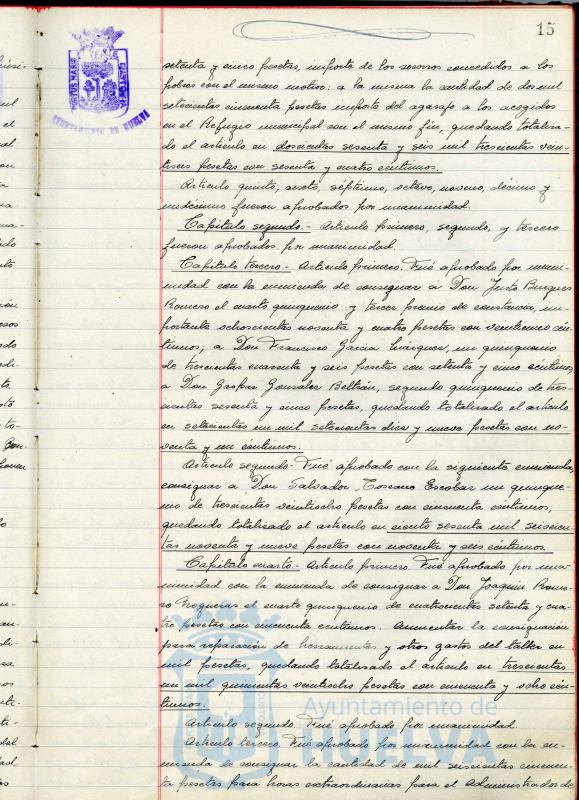 15
PORTUS MARIS ET TERRAE CUSTODIA
AYUNTAMIENTO DE HUELVA
setenta y cinco pesetas, importe de los socorros concedidos a los
pobres con el mismo motivo: a la misma la cantidad de dos mil
setecientas cincuenta pesetas importe del agasajo a los acogidos
en el Refugio municipal con el mismo fin, quedando totaliza-
do el artículo en doscientas sesenta y seis mil trescientas vein-
tiseis pesetas con sesenta y cuatro céntimos.
Artículo quinto, sexto, séptimo, octavo, noveno, décimo y
undécimo fueron aprobados por unanimidad.
Capítulo segundo.- Artículo primero, segundo, y tercero
fueron aprobados por unanimidad.
Capítulo tercero.- Artículo primero. Fué aprobado por unani-
midad con la enmienda de consignar á Don Justo Burgues
Romero el cuarto quinquenio y tercer premio de constancia, im-
portante ochocientas noventa y cuatro pesetas con veintiunos cén-
timos, a Don Francisco García Márquez, un quinquenio
de trescientas cuarenta y seis pesetas con setenta y cinco céntimos,
a Don Gaspar Gonzalez Beltrán, segundo quinquenio de tres-
cientas sesenta y cinco pesetas, quedando totalizado el artículo
en setecientas un mil setecientas diez y nueve pesetas con no-
venta y un céntimos.
Artículo segundo- Fué aprobado con la siguiente enmienda,
consignar a Don Salvador Toscano Escobar un quinque-
nio de trescientas veintiocho pesetas con cincuenta céntimos,
quedando totalizado el artículo en ciento sesenta mil seiscien-
tas noventa y nueve pesetas con noventa y seis céntimos.
Capítulo cuarto.- Artículo primero. Fué aprobado por una-
nimidad con la enmienda de consignar a Don Joaquín Rome-
ro el cuarto quinquenio de cuatrocientas setenta y cua-
tro pesetas con cincuenta céntimos. Aumentar la consignación
para reparación de herramientas y otros gastos del taller en
mil pesetas, quedando totalizado el artículo en trescientas
un mil quinientas veintiocho pesetas con cincuenta y ocho cén-
timos.
Artículo segundo. Fué aprobado por unanimidad.
Artículo tercero. Fué aprobado por unanimidad con la en-
mienda de consignar la cantidad de mil seiscientas cincuen-
ta pesetas para horas extraordinarias para el Administrador de
Ayuntamiento de
HUELVA